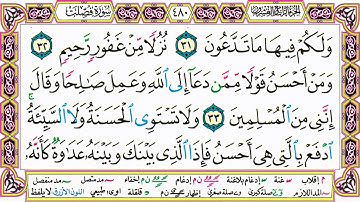 سورة فصلت ٤٨٠ الجزء الرابع والعشرون
وَلَكُمْ فِيهَا مَا تَدَّعُونَ ٣١ نُزُلًا مِّنْ غَفُورٍ رَّحِيمٍ ٣٢
وَمَنْ أَحْسَنُ قَوْلًا مِّمَّن دَعَا إِلَى اللَّهِ وَعَمِلَ صَالِحًا وَقَالَ
إِنَّنِي مِنَ الْمُسْلِمِينَ ٣٣ وَلَا تَسْتَوِي الْحَسَنَةُ وَلَا السَّيِّئَةُ
ادْفَعْ بِالَّتِي هِيَ أَحْسَنُ فَإِذَا الَّذِي بَيْنَكَ وَبَيْنَهُ عَدَاوَةٌ كَأَنَّهُ